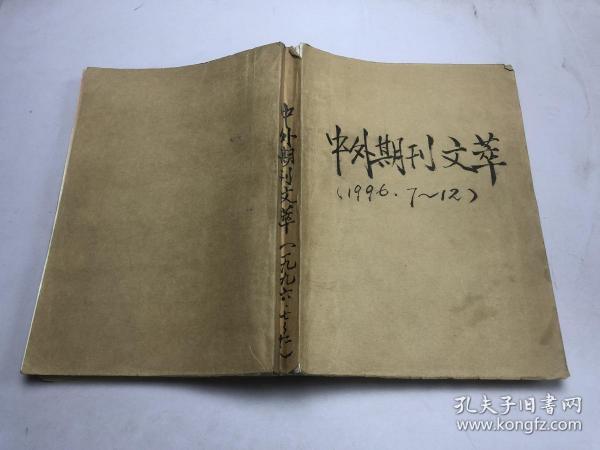 中外期刊文萃
（1996.7～12）
中外期刊文萃（一九九六·七～十二）
孔夫子旧书网
www.kongfz.com